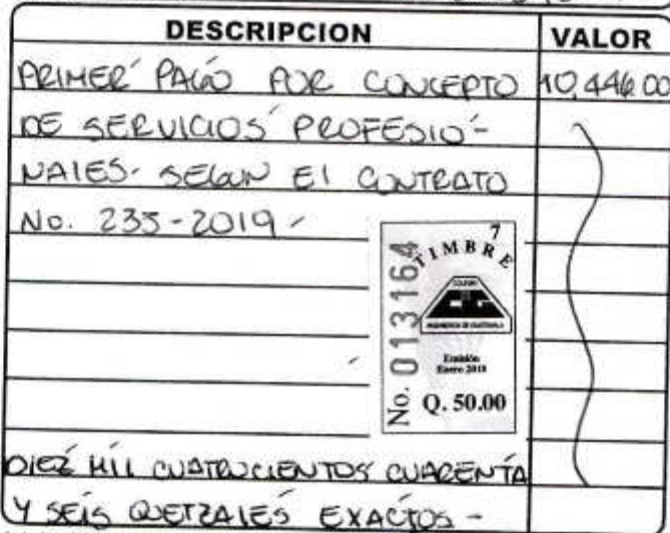 DESCRIPCION VALOR
PRIMER PAGO POR CONCEPTO 10,446.00
DE SERVICIOS PROFESIO-
NALES. SEGUN El CONTRATO
No. 233-2019-
7
TIMBRE
COLEGIO
CIG
INGENIEROS DE GUATEMALA
Emisión
Enero 2018
Q. 50.00
No. 013164
DIEZ MIL CUATROCIENTOS CUARENTA
Y SEIS QUETZALES EXACTOS -